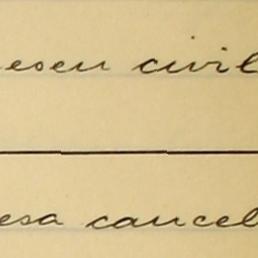 eseu civil
esa cancel